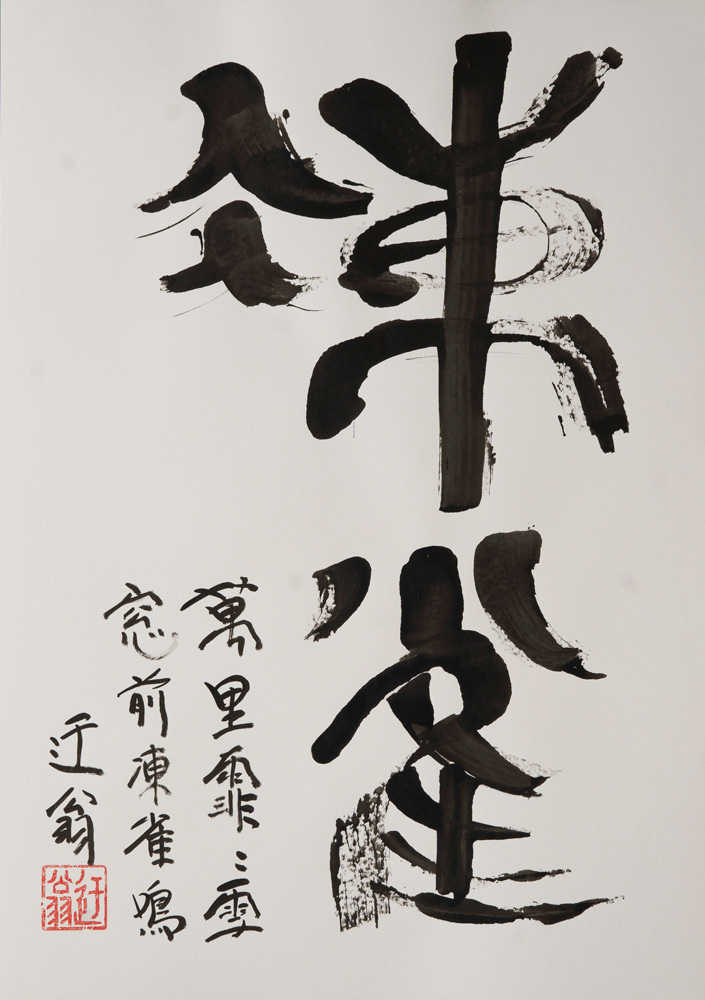 凍雀
萬里霏〻雪
窓前凍雀鳴
迂翁
迂翁